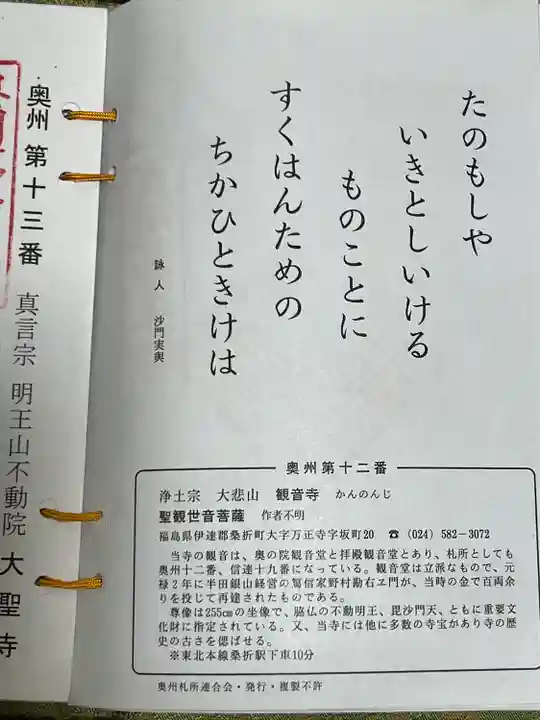 たのもしや
いきとしいける
ものことに
すくはんための
ちかひときけは
詠人 沙門実興
奥州第十二番
浄土宗 大悲山 観音寺 かんのんじ
聖観世音菩薩 作者不明
福島県伊達郡桑折町大字万正寺字坂町20 ☎ (024) 582-3072
当寺の観音は、奥の院観音堂と拝殿観音堂とあり、札所としても
奥州十二番、信達十九番になっている。観音堂は立派なもので、元
禄2年に半田銀山経営の篤信家野村勘右ヱ門が、当時の金で百両余
りを投じて再建されたものである。
尊像は255㎝の坐像で、脇仏の不動明王、毘沙門天、ともに重要文
化財に指定されている。又、当寺には他に多数の寺宝があり寺の歴
史の古さを偲ばせる。
※東北本線桑折駅下車10分
奥州札所連合会・発行・複製不許
奥州 第十三番 真言宗 明王山不動院 大聖寺